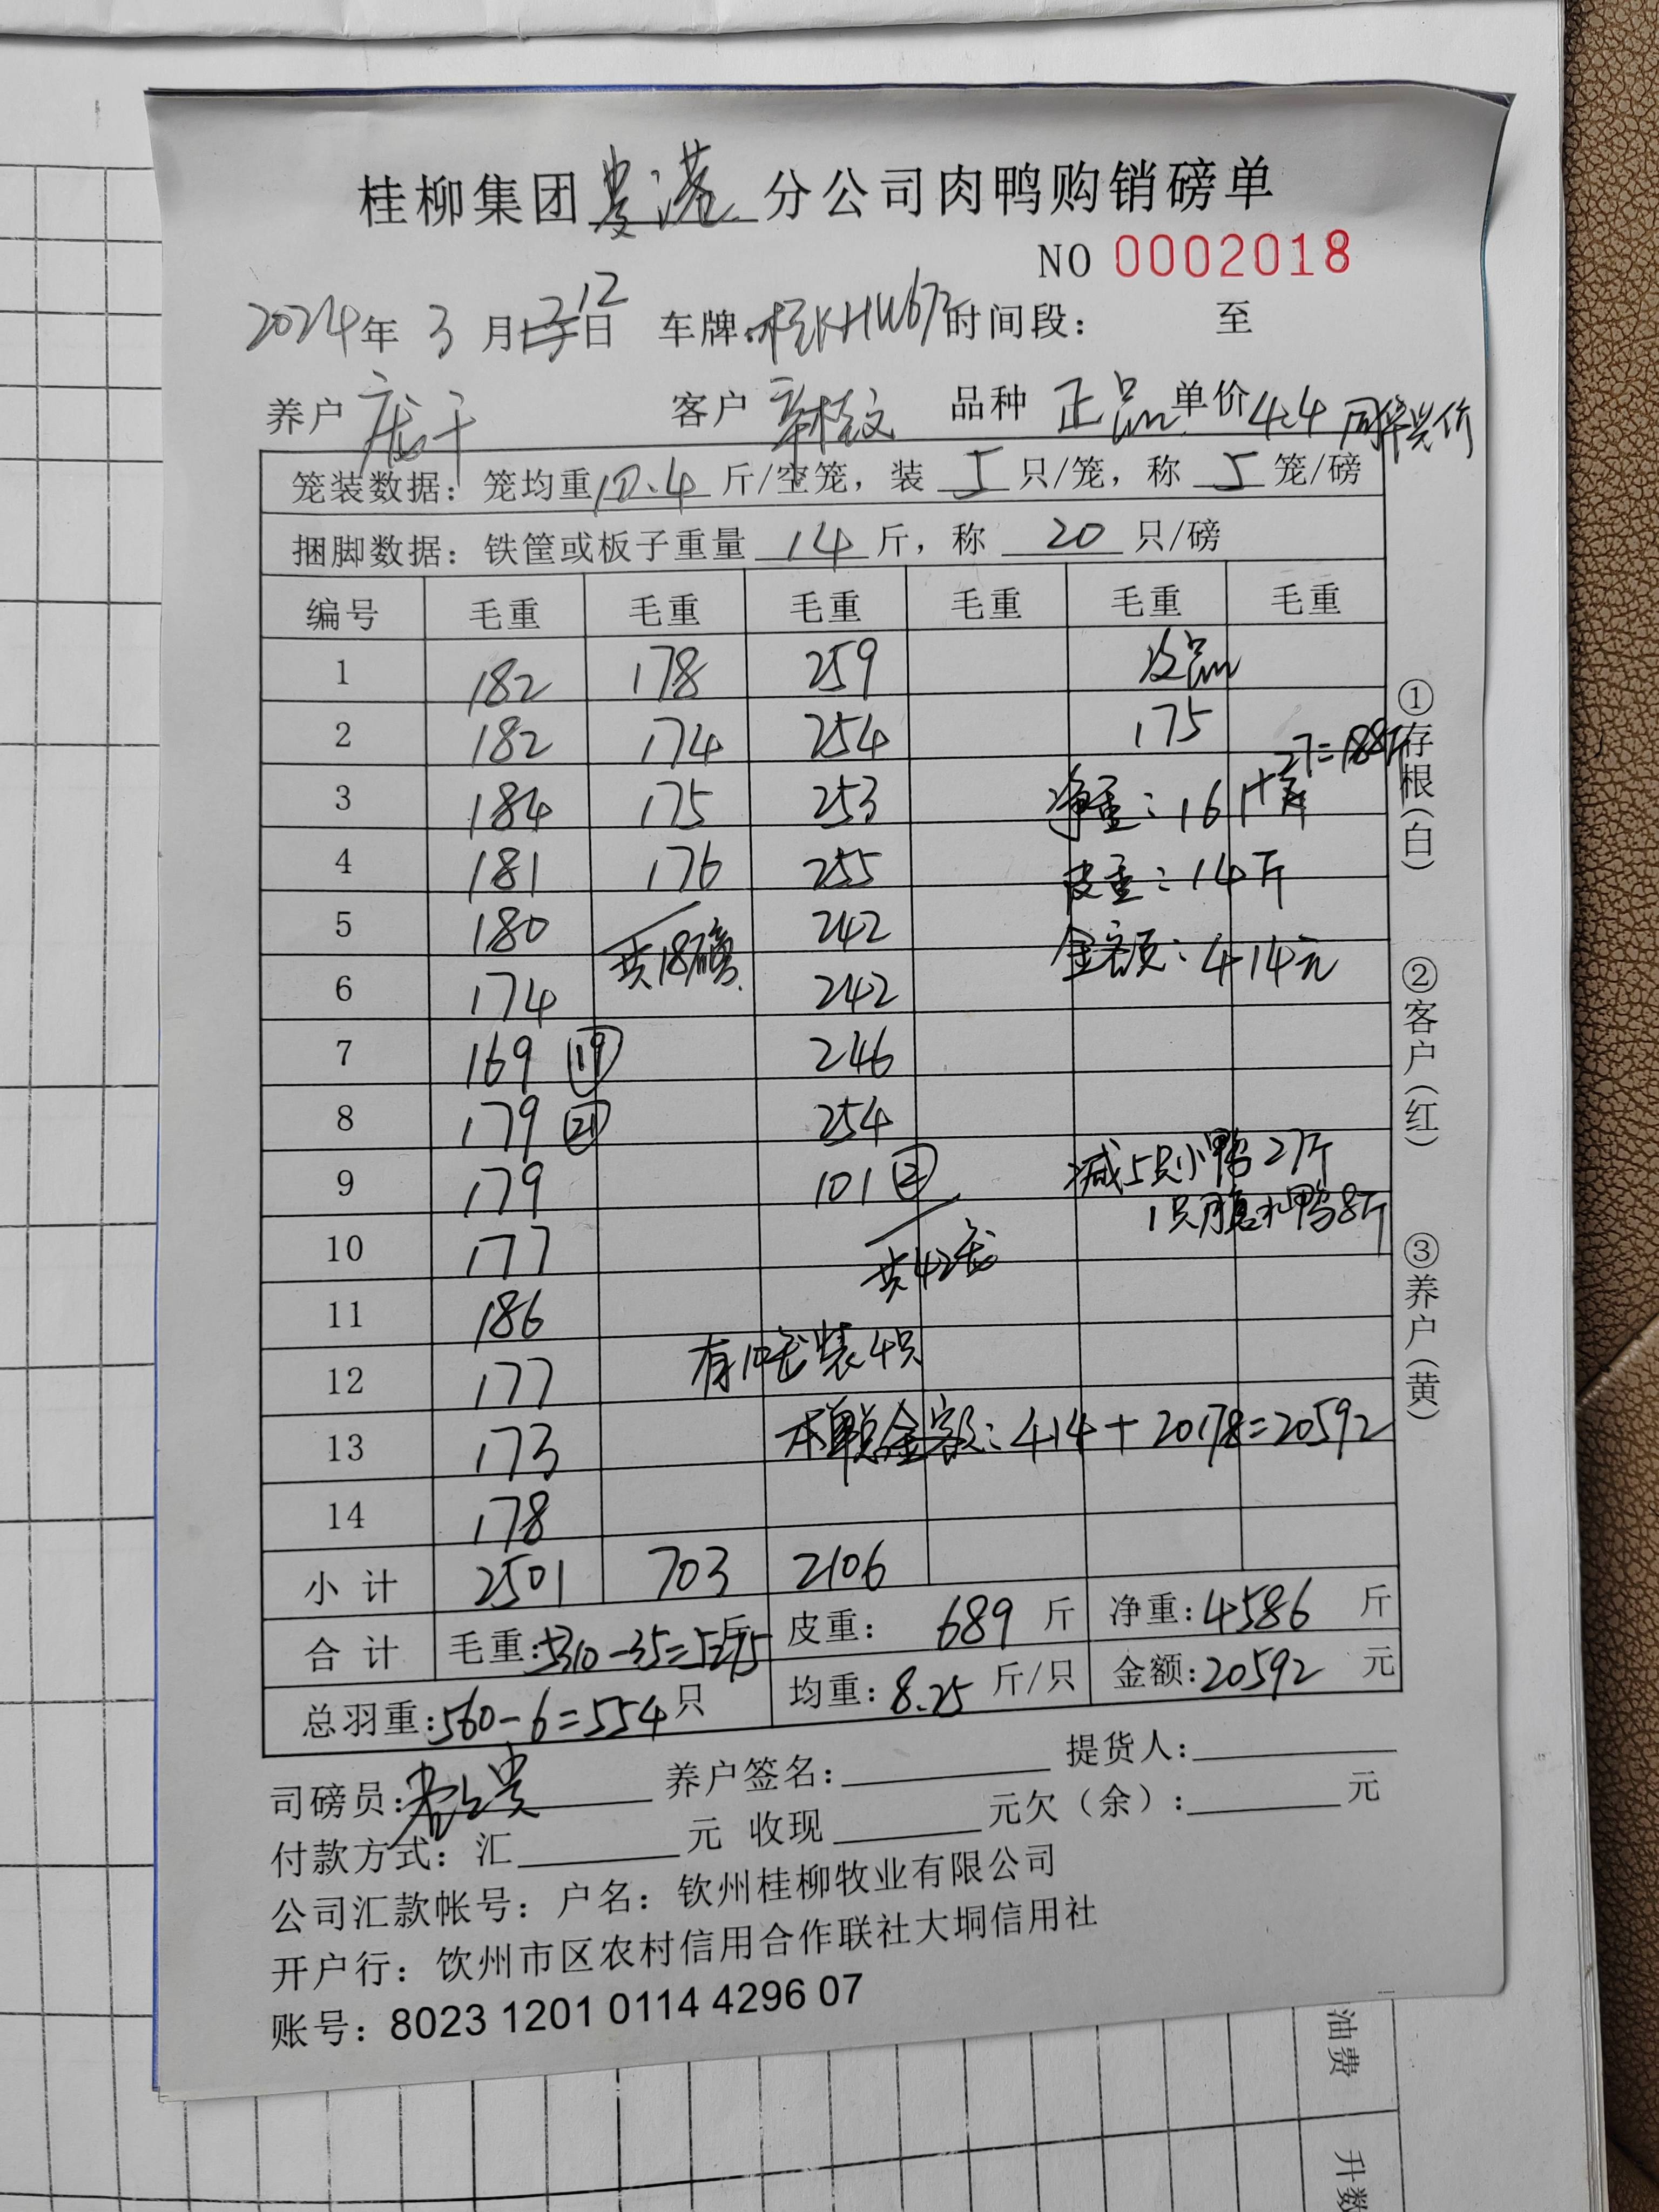 桂柳集团贵港分公司肉鸭购销磅单
NO 0002018
2024年 3 月 12 日 车牌:桂KHW673 时间段: 至
养户 庞千 客户 辛桂文 品种 正品 单价 4.4 同华兴价
笼装数据: 笼均重 10.4 斤/空笼, 装 5 只/笼, 称 5 笼/磅
捆脚数据: 铁筐或板子重量 14 斤, 称 20 只/磅
编号 毛重 毛重 毛重 毛重 毛重 毛重
1 182 178 259 次品
2 182 174 254 175
3 184 175 253 净重:161斤+27=188斤
4 181 176 255 皮重:14斤
5 180 共18磅 242 金额:414元
6 174 242
7 169 ⑲ 246
8 179 ㉑ 254
9 179 101 ② 减5只小鸭27斤
1只腹水鸭8斤
10 177 共42笼
11 186
12 177 有1笼装4只
13 173 本单总金额:414+20178=20592
14 178
小 计 2501 703 2106
合 计 毛重:5310-35=5275斤 皮重: 689 斤 净重:4586 斤
总羽重:560-6=554只 均重:8.25 斤/只 金额:20592 元
司磅员: 养户签名: 提货人:
付款方式: 汇 元 收现 元欠(余): 元
公司汇款帐号: 户名: 钦州桂柳牧业有限公司
开户行: 饮州市区农村信用合作联社大垌信用社
账号: 8023 1201 0114 4296 07
①存根(白)
②客户(红)
③养户(黄)
油费
升数